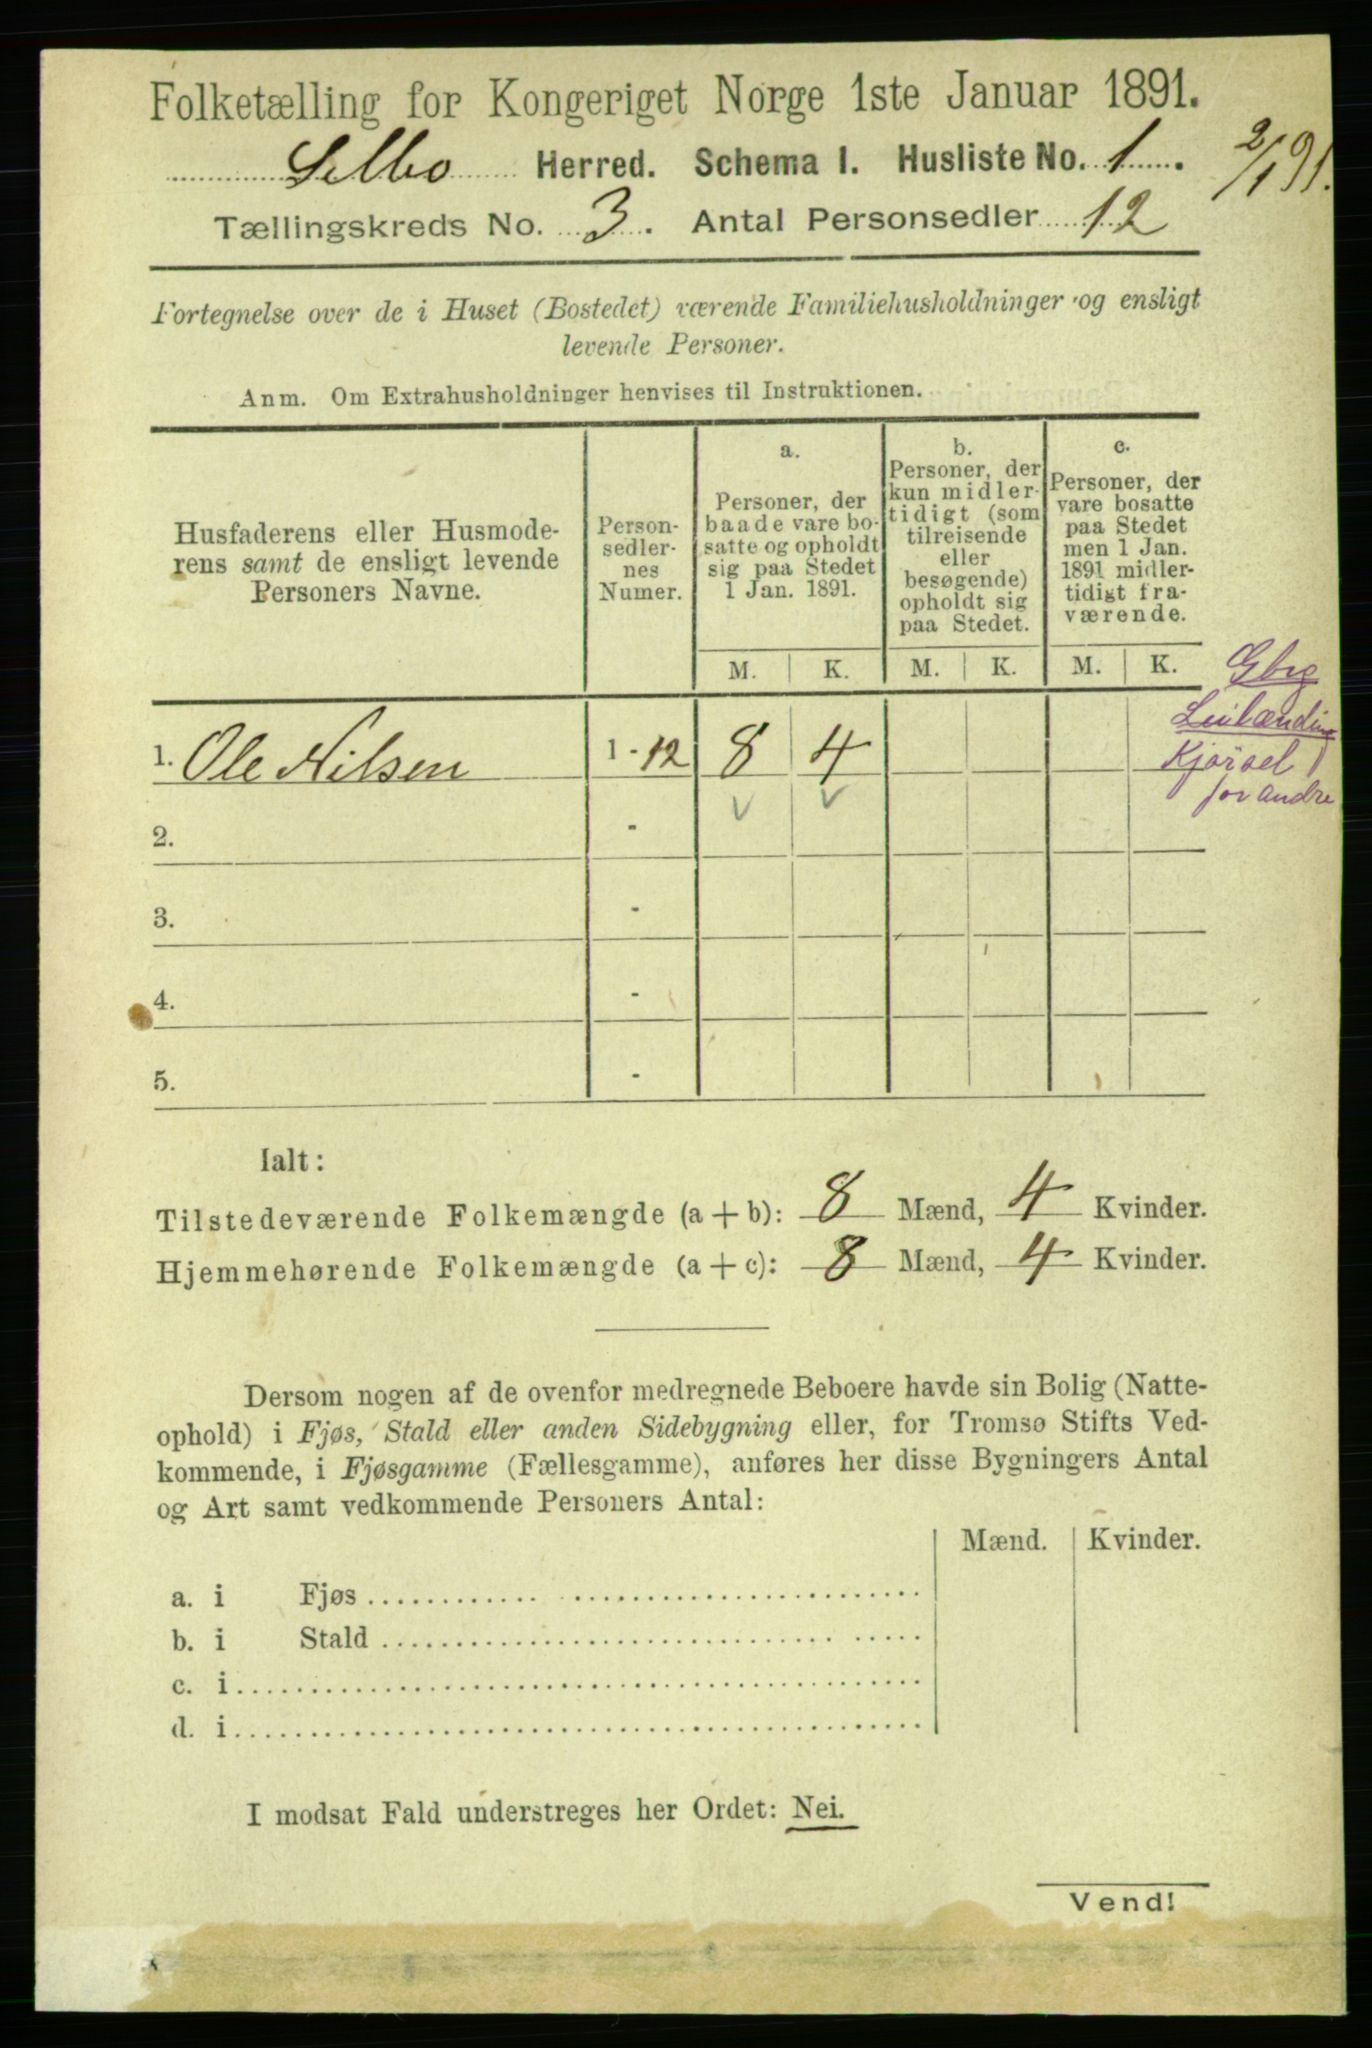 Folketælling for Kongeriget Norge 1ste Januar 1891.
Selbo Herred. Schema I. Husliste No. 1.
2/1 91.
Tællingskreds No. 3. Antal Personsedler 12
Fortegnelse over de i Huset (Bostedet) værende Familiehusholdninger og ensligt
levende Personer.
Anm. Om Extrahusholdninger henvises til Instruktionen.
Husfaderens eller Husmode-
rens samt de ensligt levende
Personers Navne.
Person-
sedler-
nes
Numer.
a.
Personer, der
baade vare bo-
satte og opholdt
sig paa Stedet
1 Jan. 1891.
b.
Personer, der
kun midler-
tidigt (som
tilreisende
eller
besøgende)
opholdt sig
paa Stedet.
c.
Personer, der
vare bosatte
paa Stedet
men 1 Jan.
1891 midler-
tidigt fra-
værende.
M. K. M. K. M. K.
Gbrg
Leilænding
Kjørsel
for andre
1. Ole Nilsen 1-12 8 4
2. -
3. -
4. -
5. -
Ialt:
Tilstedeværende Folkemængde (a + b): 8 Mænd, 4 Kvinder.
Hjemmehørende Folkemængde (a + c): 8 Mænd, 4 Kvinder.
Dersom nogen af de ovenfor medregnede Beboere havde sin Bolig (Natte-
ophold) i Fjøs, Stald eller anden Sidebygning eller, for Tromsø Stifts Ved-
kommende, i Fjøsgamme (Fællesgamme), anføres her disse Bygningers Antal
og Art samt vedkommende Personers Antal:
Mænd. Kvinder.
a. i Fjøs
b. i Stald
c. i
d. i
I modsat Fald understreges her Ordet: Nei.
Vend!